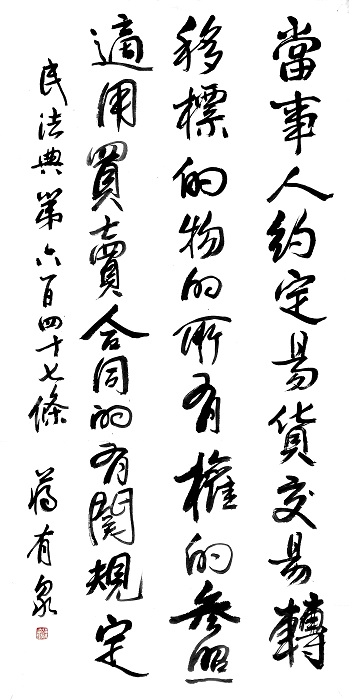 當事人約定易貨交易轉
移標的物的所有權的參照
適用買賣合同的有關規定
民法典第六百四十七條 蔣有泉